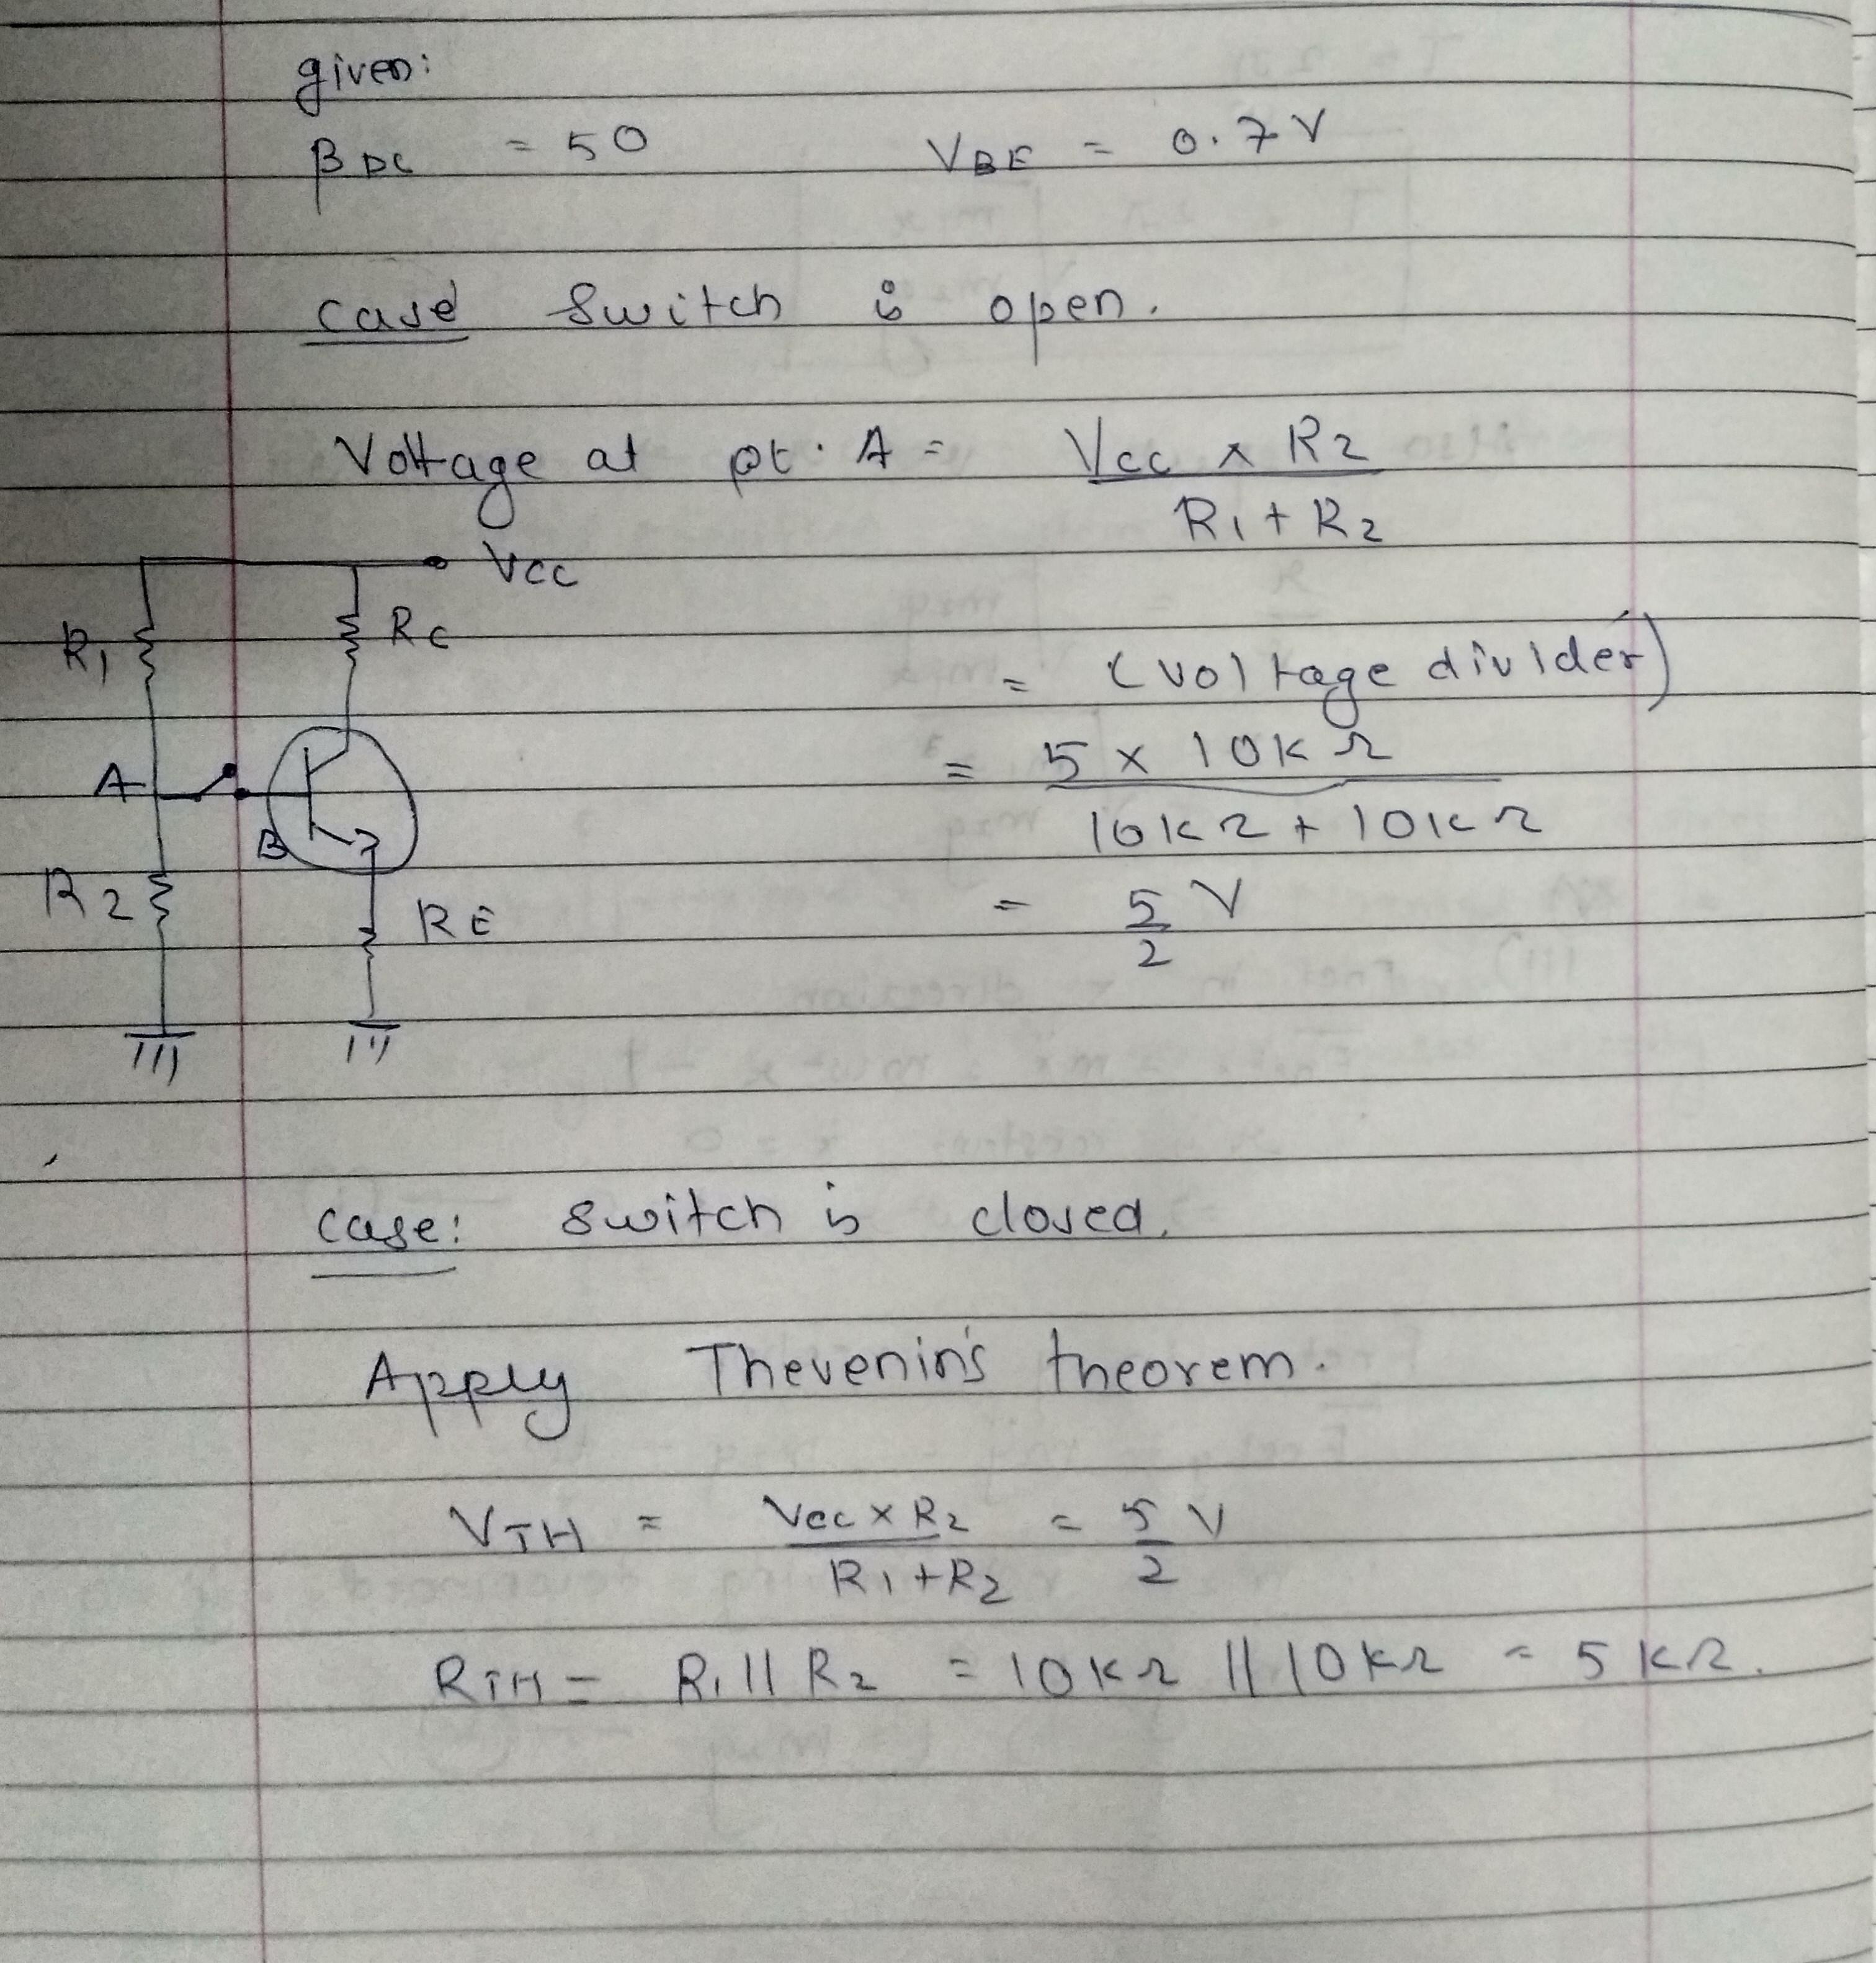 given:
βDC = 50 VBE = 0.7 V
case Switch is open.
Voltage at pt. A = Vcc x R2
R1 + R2
Vcc
R1 RC
= (voltage divider)
A
= 5 x 10KΩ
10KΩ + 10KΩ
B
R2 RE
= 5 V
2
case: switch is closed.
Apply Thevenin's theorem.
VTH = Vcc x R2 = 5 V
R1 + R2 2
RTH = R1 || R2 = 10KΩ || 10KΩ = 5KΩ.